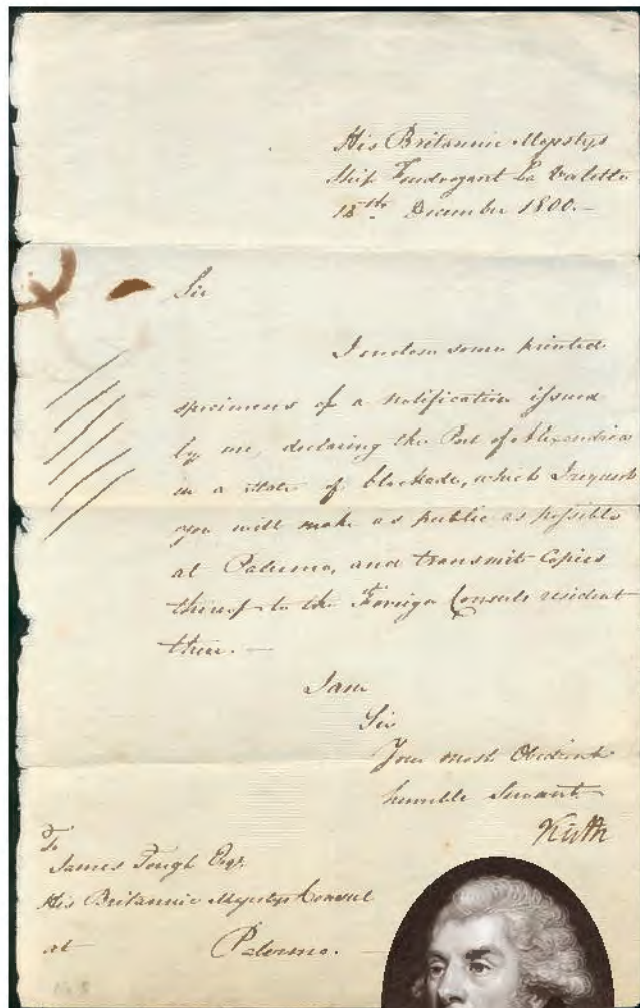 His Britannic Majestys
Ship Foudroyant La Valette
15th December 1800.—
Sir
I enclose some printed
specimens of a Notification issued
by me, declaring the Port of Alexandria
in a state of blockade, which I request
you will make as public as possible
at Palermo, and transmit Copies
thereof to the Foreign Consuls resident
there.—
I am
Sir
Your most Obedient
humble Servant
Keith
To
James Tough Esqr.
His Britannic Majestys Consul
at Palermo.